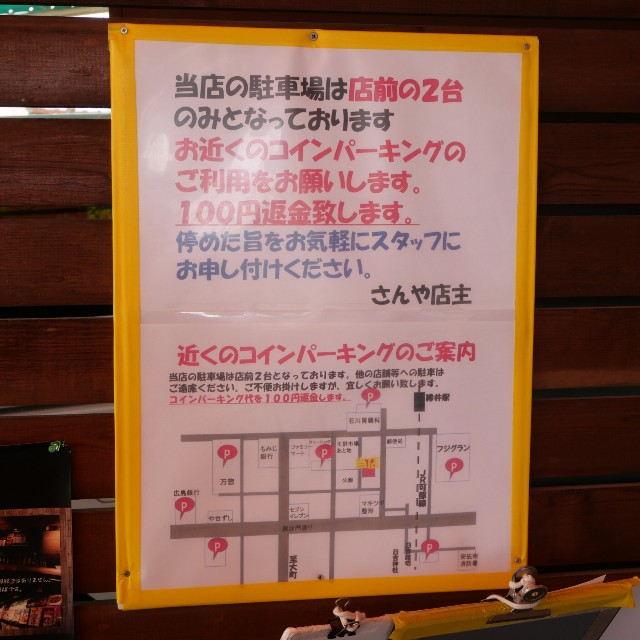 当店の駐車場は店前の2台
のみとなっております
お近くのコインパーキングの
ご利用をお願いします。
100円返金致します。
停めた旨をお気軽にスタッフに
お申し付けください。
さんや店主
近くのコインパーキングのご案内
当店の駐車場は店前2台となっております。他の店舗等への駐車は
ご遠慮ください。ご不便お掛けしますが、宜しくお願い致します。
コインパーキング代を100円返金します。
緑井駅
P
石川胃腸科
もみじ
銀行
ファミリー
マート
P
生鮮市場
あと地
郵便局
フジグラン
P
P
万惣
広島銀行
P
セブン
イレブン
マキツボ
整形
JR可部線
やまずし
P
P
毘沙門通り
至大町
安佐南
消防署